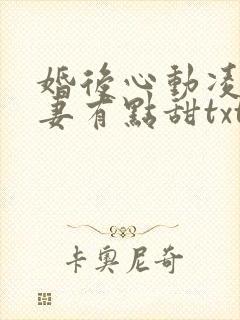 婚後心動凌
妻有點甜txt
卡奧尼奇